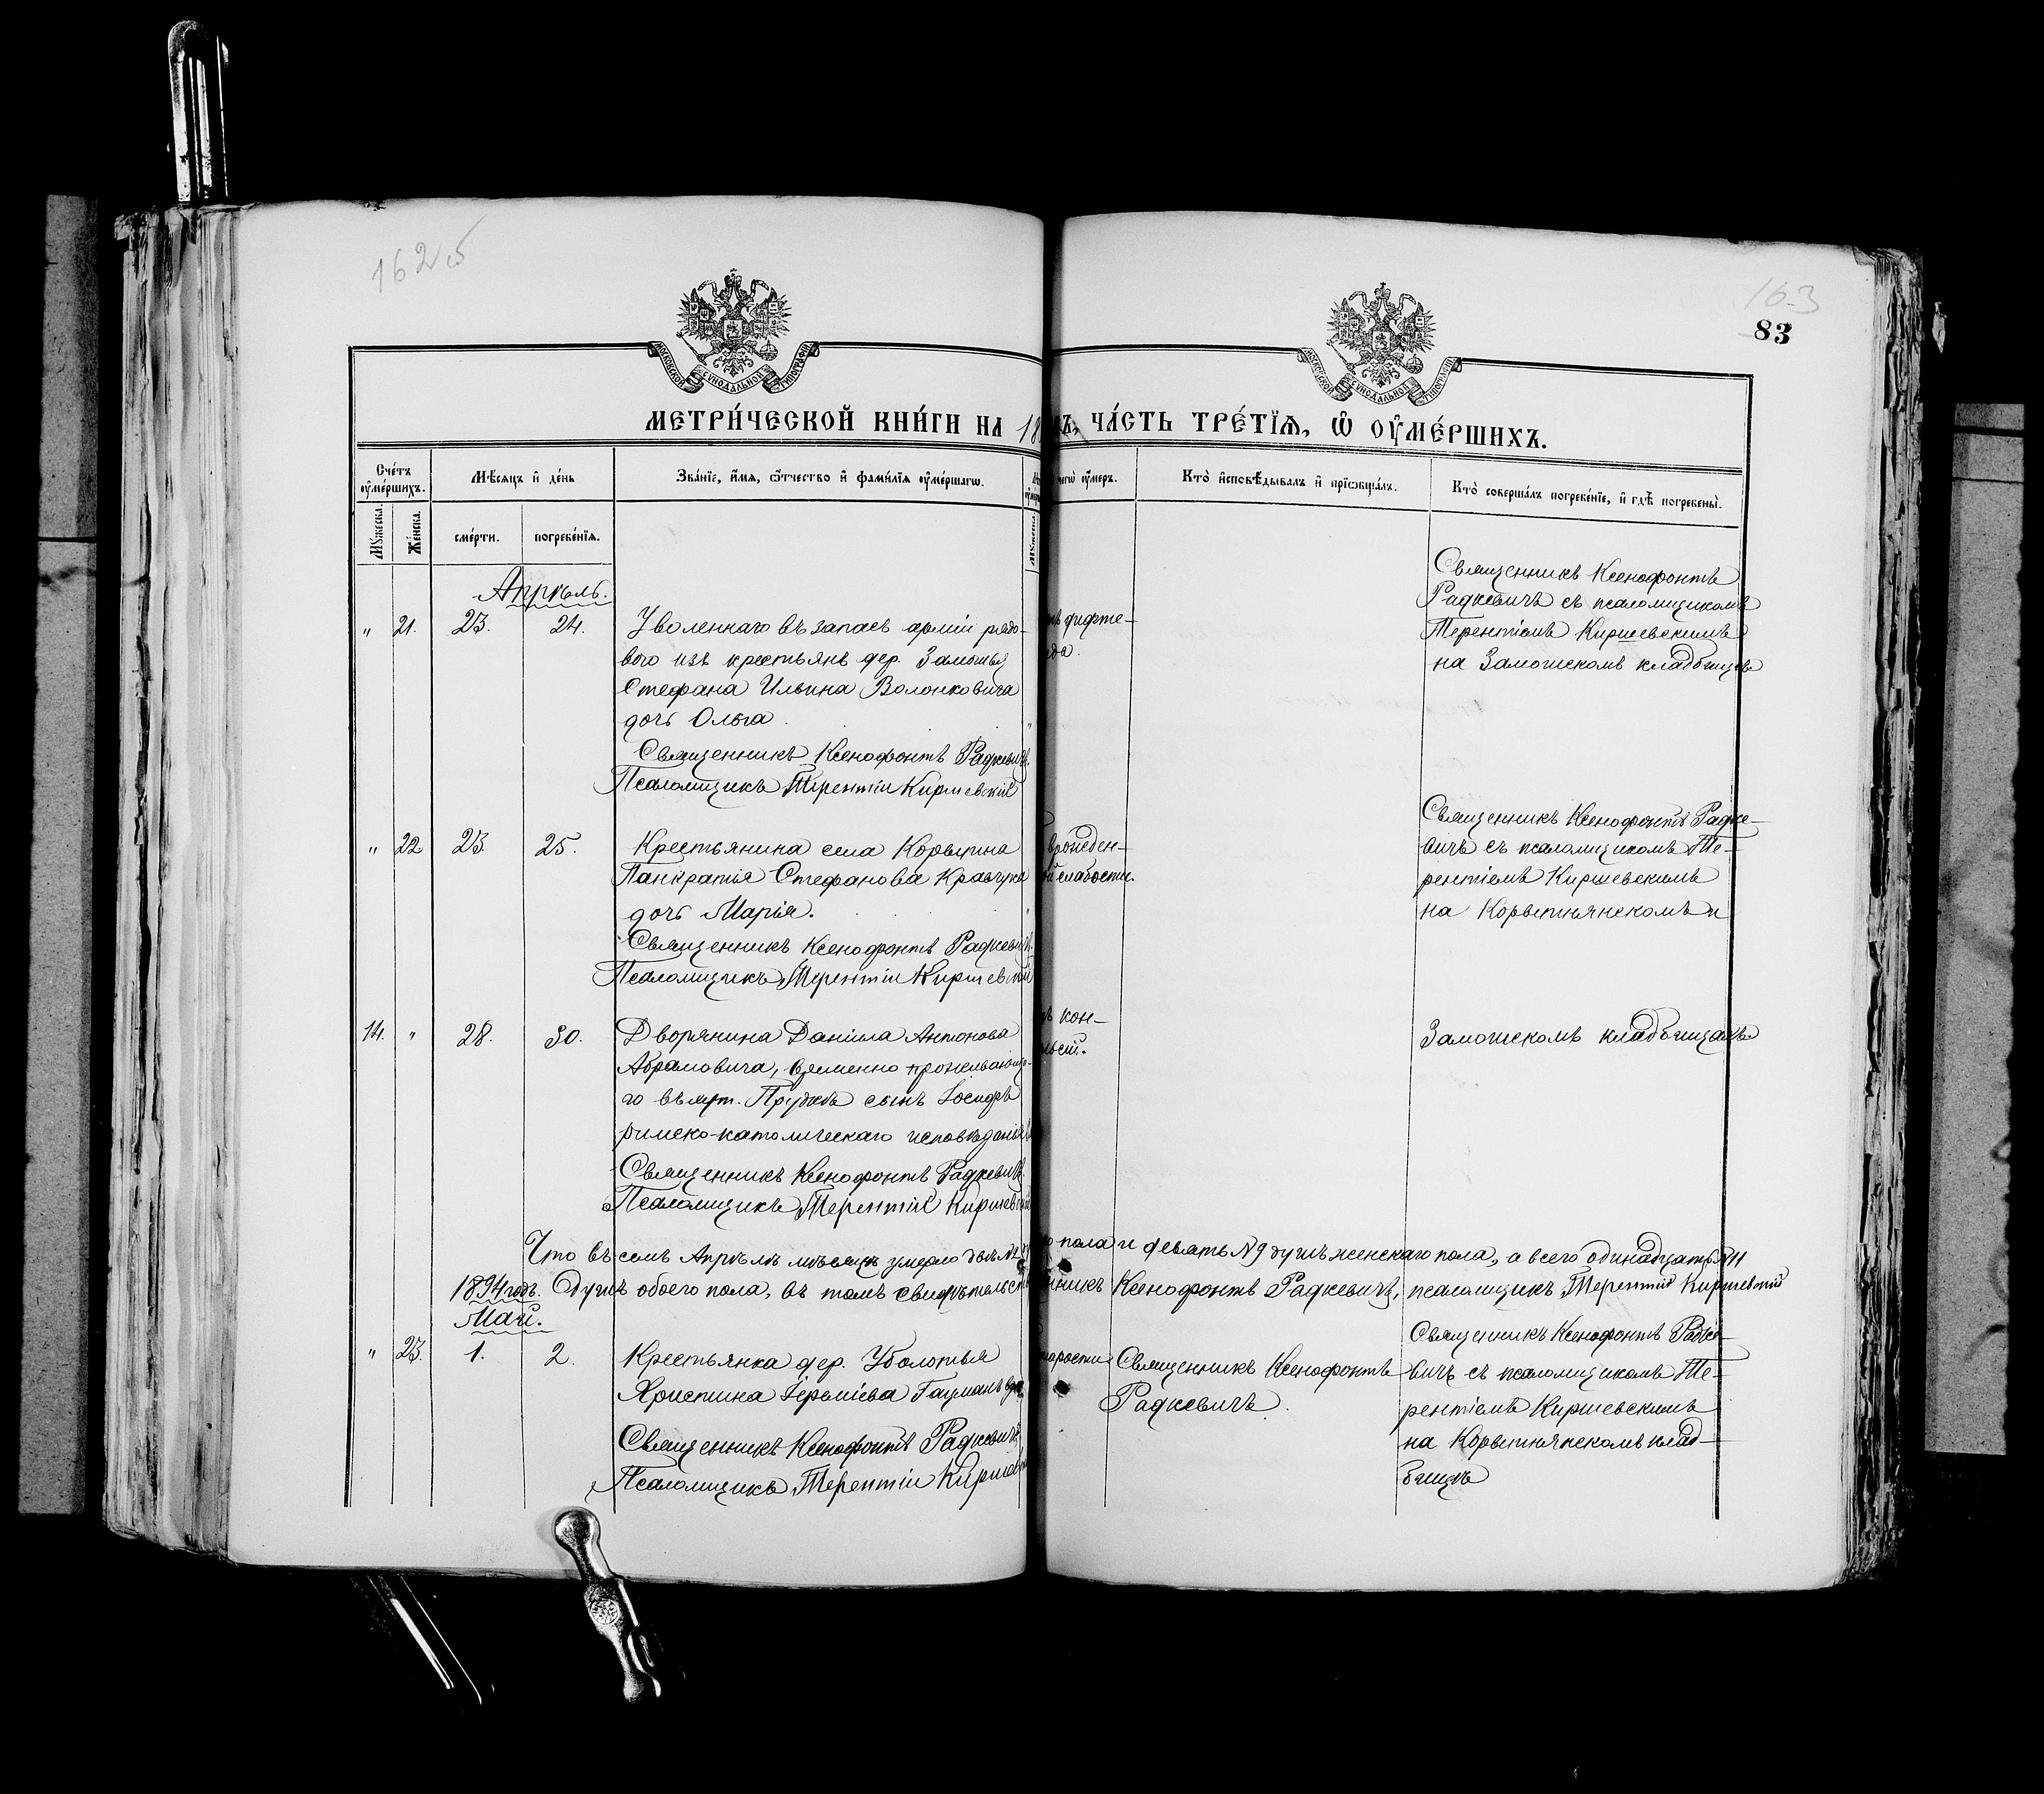 162 об
163
83
МОСКОВСКОЙ СѴНОДАЛЬНОЙ ТИПОГРАФІИ
МОСКОВСКОЙ СѴНОДАЛЬНОЙ ТИПОГРАФІИ
МЕТРИ́ЧЕСКОЙ КНИ́ГИ НА 18 Ъ, ЧА́СТЬ ТРЕ́ТЇѦ, Ѡ҆ ОУ҆МЕ́РШИХЪ.
Сче́тъ оу҆ме́ршихъ.
Мѣ́сяцъ и҆ де́нь
Зва́нїе, и҆́мя, ѻ҆́тчество и҆ фами́лїя оу҆ме́ршагѡ.
чегѡ̀ оу҆́меръ.
Кто̀ и҆сповѣ́дывалъ и҆ прїѡбща́лъ.
Кто̀ соверша́лъ погребе́нїе, и҆ гдѣ̀ погребены̀.
Мꙋ́жеска.
Же́нска.
сме́рти.
погребе́нїя.
Мꙋ́жеска.
Апрѣль.
" 21. 23. 24.
Уволеннаго въ запасъ арміи рядо-
вого изъ крестьянъ дер. Замошья
Стефана Ильина Волонковича
дочь Ольга.
Священникъ Ксенофонтъ Радкевичъ.
Псаломщикъ Терентій Киршевскій
дифте-
Священникъ Ксенофонтъ
Радкевичъ съ псаломщикомъ
Терентіемъ Киршевскимъ
на Замошскомъ кладбищѣ
" 22 23 25.
Крестьянина села Корветина
Панкратія Стефанова Кравчука
дочь Марія.
Священникъ Ксенофонтъ Радкевичъ
Псаломщикъ Терентій Киршевскій
врожден-
слабости.
Священникъ Ксенофонтъ Радке-
вичъ съ псаломщикомъ Те-
рентіемъ Киршевскимъ
на Корветнянскомъ и
14. " 28. 30.
Дворянина Даніила Антонова
Абрамовича, временно прожывающа-
го въ Прудкѣ сынъ Іосифъ
римско-католическаго исповѣданія
Священникъ Ксенофонтъ Радкевичъ.
Псаломщикъ Терентій Киршевскій
кон-
Замошскомъ кладбищахъ
Что въ семъ Апрѣлѣ мѣсяцѣ умерло двѣ №2 пола и девять №9 душъ женскаго пола, а всего одинадцать №11
душъ обоего пола, въ томъ свидѣтельст Ксенофонтъ Радкевичъ, псаломщикъ Терентій Киршевскій
1894 годъ.
Май.
" 23. 1. 2.
Крестьянка дер. Уболотья
Христина Іереміева Гацманъ
Священникъ Ксенофонтъ Радкевичъ
Псаломщикъ Терентій Киршев
Священникъ Ксенофонтъ
Радкевичъ.
Священникъ Ксенофонтъ Радке-
вичъ съ псаломщикомъ Те-
рентіемъ Киршевскимъ
на Корветнянскомъ клад-
бищѣ